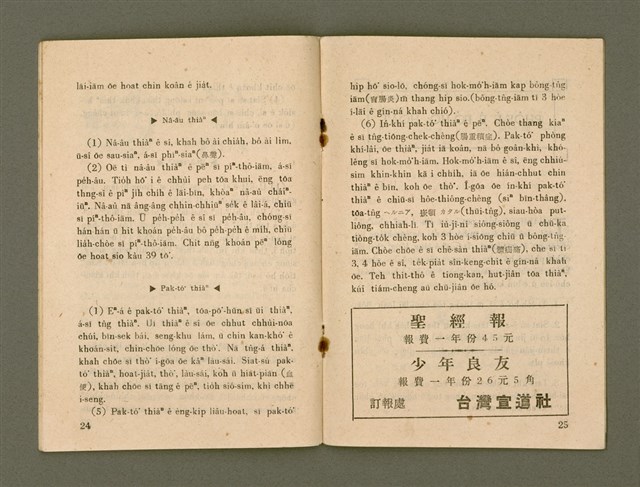 lāi-iām ōe hoat chin koân ê jia̍t.
▶ Nâ-âu thiàⁿ ◀
(1) Nâ-âu thiàⁿ ê sî, khah bô ài chia̍h, bô ài lim,
ū-sî ōe sau-siaⁿ, á-sī phīⁿ-siaⁿ(鼻聲).
(2) Ōe tì nâ-âu thiàⁿ ê pēⁿ sī pīⁿ-thô-iām, á-sī
pe̍h-âu. Tio̍h hō͘ i ê chhùi peh tōa khui, ēng tōa
thng-sî ê pīⁿ jih chi̍h ê lāi-bīn, khòaⁿ nâ-aû chāiⁿ-
iūⁿ. Nâ-aû nā âng-âng chhin-chhiūⁿ sek ê lâi-á, chiū
sī pīⁿ-thô-iām. Ū pe̍h-pe̍h ê sî sī pe̍h-âu, chóng-sī
hán hán ū hit khoán pe̍h-âu bô pe̍h-pe̍h ê mi̍h, chiū
lia̍h-chòe sī pīⁿ-thô-iām. Chit nn̄g khoán pēⁿ lóng
ōe hoat sio kàu 39 tō͘.
▶ Pak-tó͘ thiàⁿ ◀
(1) Eⁿ-á ê pak-tó͘ thiàⁿ, tōa-pō͘-hūn sī ūi thiàⁿ,
á-sī tn̂g thiàⁿ. Ūi thiàⁿ ê sî ōe chhut chhùi-nōa
chúi, bīn-sek bái, seng-khu lám, ū chin kan-khó͘ ê
khoán-sit, chin-chòe lóng ōe thò͘. Nā tn̂g-á thiàⁿ,
khah chōe sī thò͘ í-gōa ōe kā̍ⁿ làu-sái. Siat-sú pak-
tó͘ thiàⁿ, hoat-jia̍t, thò͘, làu-sái, koh ū hiat-piān (血
便), khah chōe sī tāng ê pēⁿ, tio̍h sió-sim, khì chhē
i-seng.
(5) Pak-tó͘ thiàⁿ ê èng-kip liâu-hoat, sī pak-tó͘
24
hip hō͘ sio-lō, chóng-sī hok-mō͘h-iām kap bông-tn̂g
iām(盲腸炎)m̄ thang hip sio.(bông-tn̂g-iām tī 3 hòe
í-lāi ê gín-ná khah chió).
(6) In-khí pak-tó͘ thiàⁿ ê pēⁿ. Chōe thang kiaⁿ
ê sī tn̂g-tiông-chek-chèng(腸重積症). Pak-tó͘ phòng
khí-lâi, ōe thiàⁿ, jia̍t iā koân, nā bô goân-khì, khó-
lêng sī hok-mō͘h-iām. Hok-mō͘h-iām ê sî, ēng chhiú-
sim khin-khin kā i chhi̍h, iā ōe hián-chhut chin
thiàⁿ ê bīn, koh ōe thò͘. Í-gōa ōe ín-khí pak-tó͘
thiàⁿ ê chiū-sī hôe-thiông-chêng (siⁿ bīn-thâng),
tōa-tn̂g ヘルニア, 嵌頓 カタル(thūi-tn̂g), siau-hòa put-
liông, chhiah-lī. Tī iù-jî-nî siông-siông ū chū-ka
tiòng-to̍k chèng, koh 3 hòe í-siōng chiū ū bông-tn̂g-
iām. Chōe chōe ê sî chē-sàn thiàⁿ(臍疝痛), che sī tī
3, 4 hòe ê sî, te̍k-pia̍t sîn-keng-chit ê gín-ná khah
ōe. Teh thit-thô ê tiong-kan, hut-jiân tōa thiàⁿ,
kúi tiám-cheng aū chū-jiân ōe hó.
聖經報
報費一年份45元
少年良友
報費一年份26元5角
訂報處 台灣宣道社
25